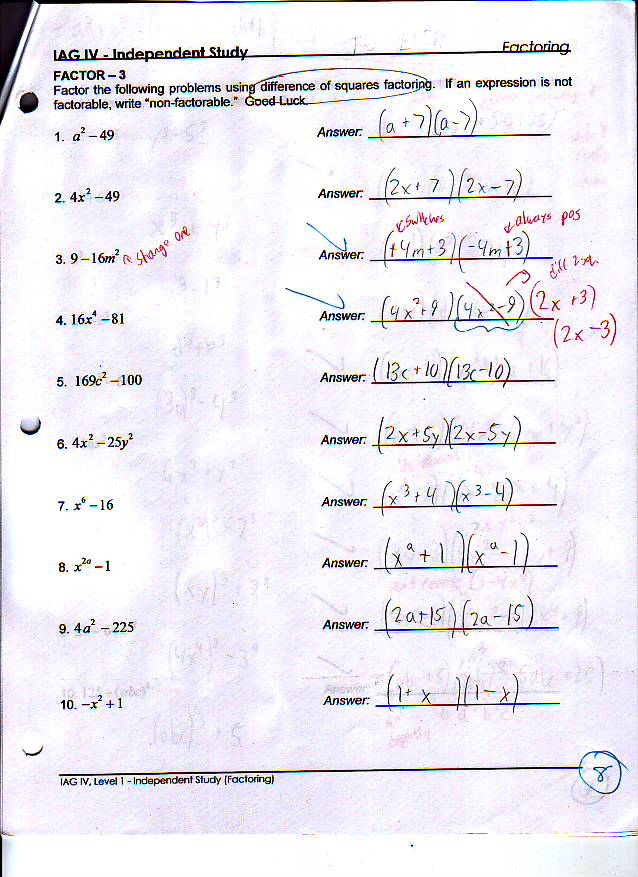 IAG IV - Independent Study Factoring
FACTOR – 3
Factor the following problems using difference of squares factoring. If an expression is not
factorable, write "non-factorable." Good Luck.
1. a² – 49 Answer: (a + 7)(a - 7)
2. 4x² – 49 Answer: (2x + 7)(2x - 7)
switches always pos
3. 9 – 16m² change one Answer: (+4m+3)(-4m+3)
diff 2 sq.
4. 16x⁴ – 81 Answer: (4x²+9)(4x²-9) (2x +3)
(2x -3)
5. 169c² – 100 Answer: (13c + 10)(13c - 10)
6. 4x² – 25y² Answer: (2x+5y)(2x-5y)
7. x⁶ – 16 Answer: (x³ + 4)(x³ - 4)
8. x²ᵃ – 1 Answer: (xᵃ + 1)(xᵃ - 1)
9. 4a² – 225 Answer: (2a+15)(2a-15)
10. –x² + 1 Answer: (1+ x)(1 - x)
IAG IV, Level 1 - Independent Study (Factoring) 8